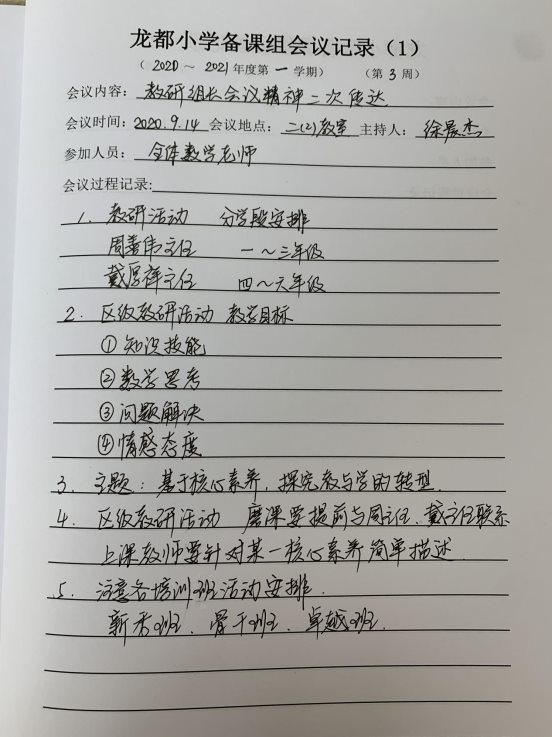 龙都小学备课组会议记录（1）
（ 2020 ～ 2021 年度第 一 学期） （第 3 周）
会议内容： 教研组长会议精神二次传达
会议时间：2020.9.14 会议地点： 二(2)教室 主持人： 徐晨杰
参加人员： 全体数学老师
会议过程记录:
1. 教研活动 分学段安排
周善伟主任 一～三年级
戴厚祥主任 四～六年级
2. 区级教研活动 教学目标
①知识技能
②数学思考
③问题解决
④情感态度
3. 主题：基于核心素养，探究教与学的转型.
4. 区级教研活动 磨课要提前与周主任、戴主任联系
上课教师要针对某一核心素养简单描述.
5. 注意各培训班活动安排.
新秀班、骨干班、卓越班.